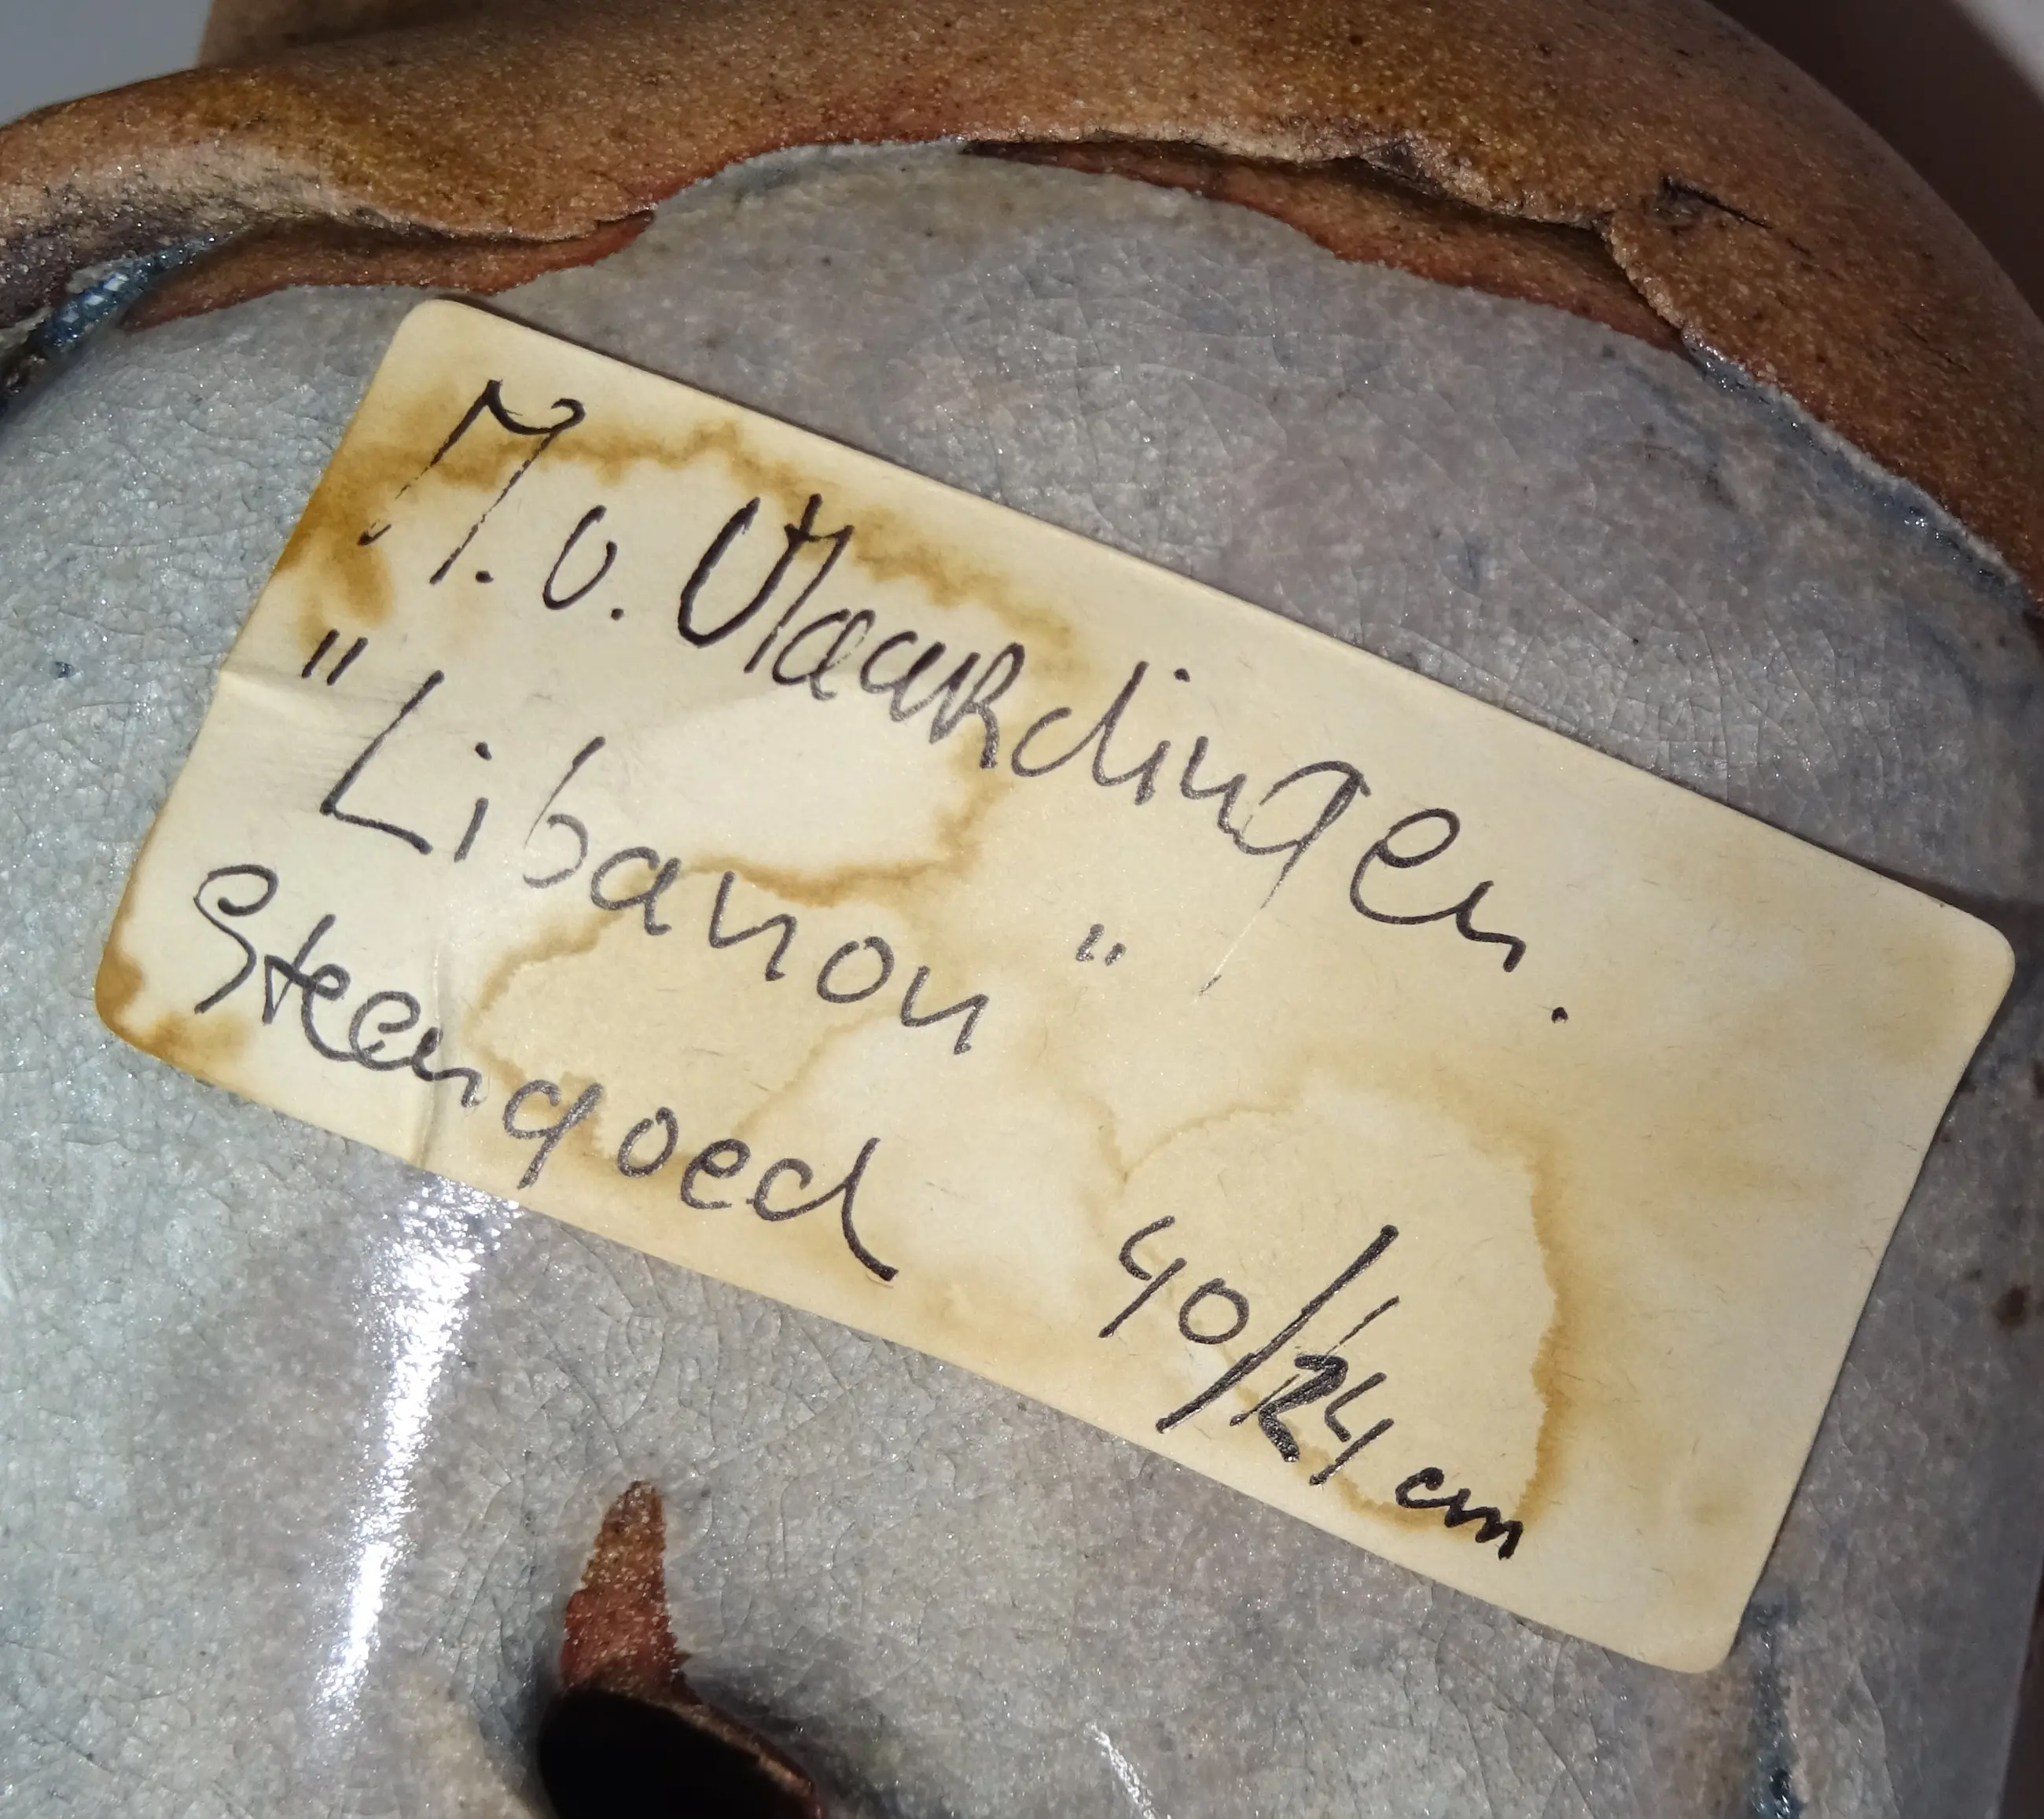 M. v. Vlaardingen.
"Libanon"
Steengoed 40/24 cm